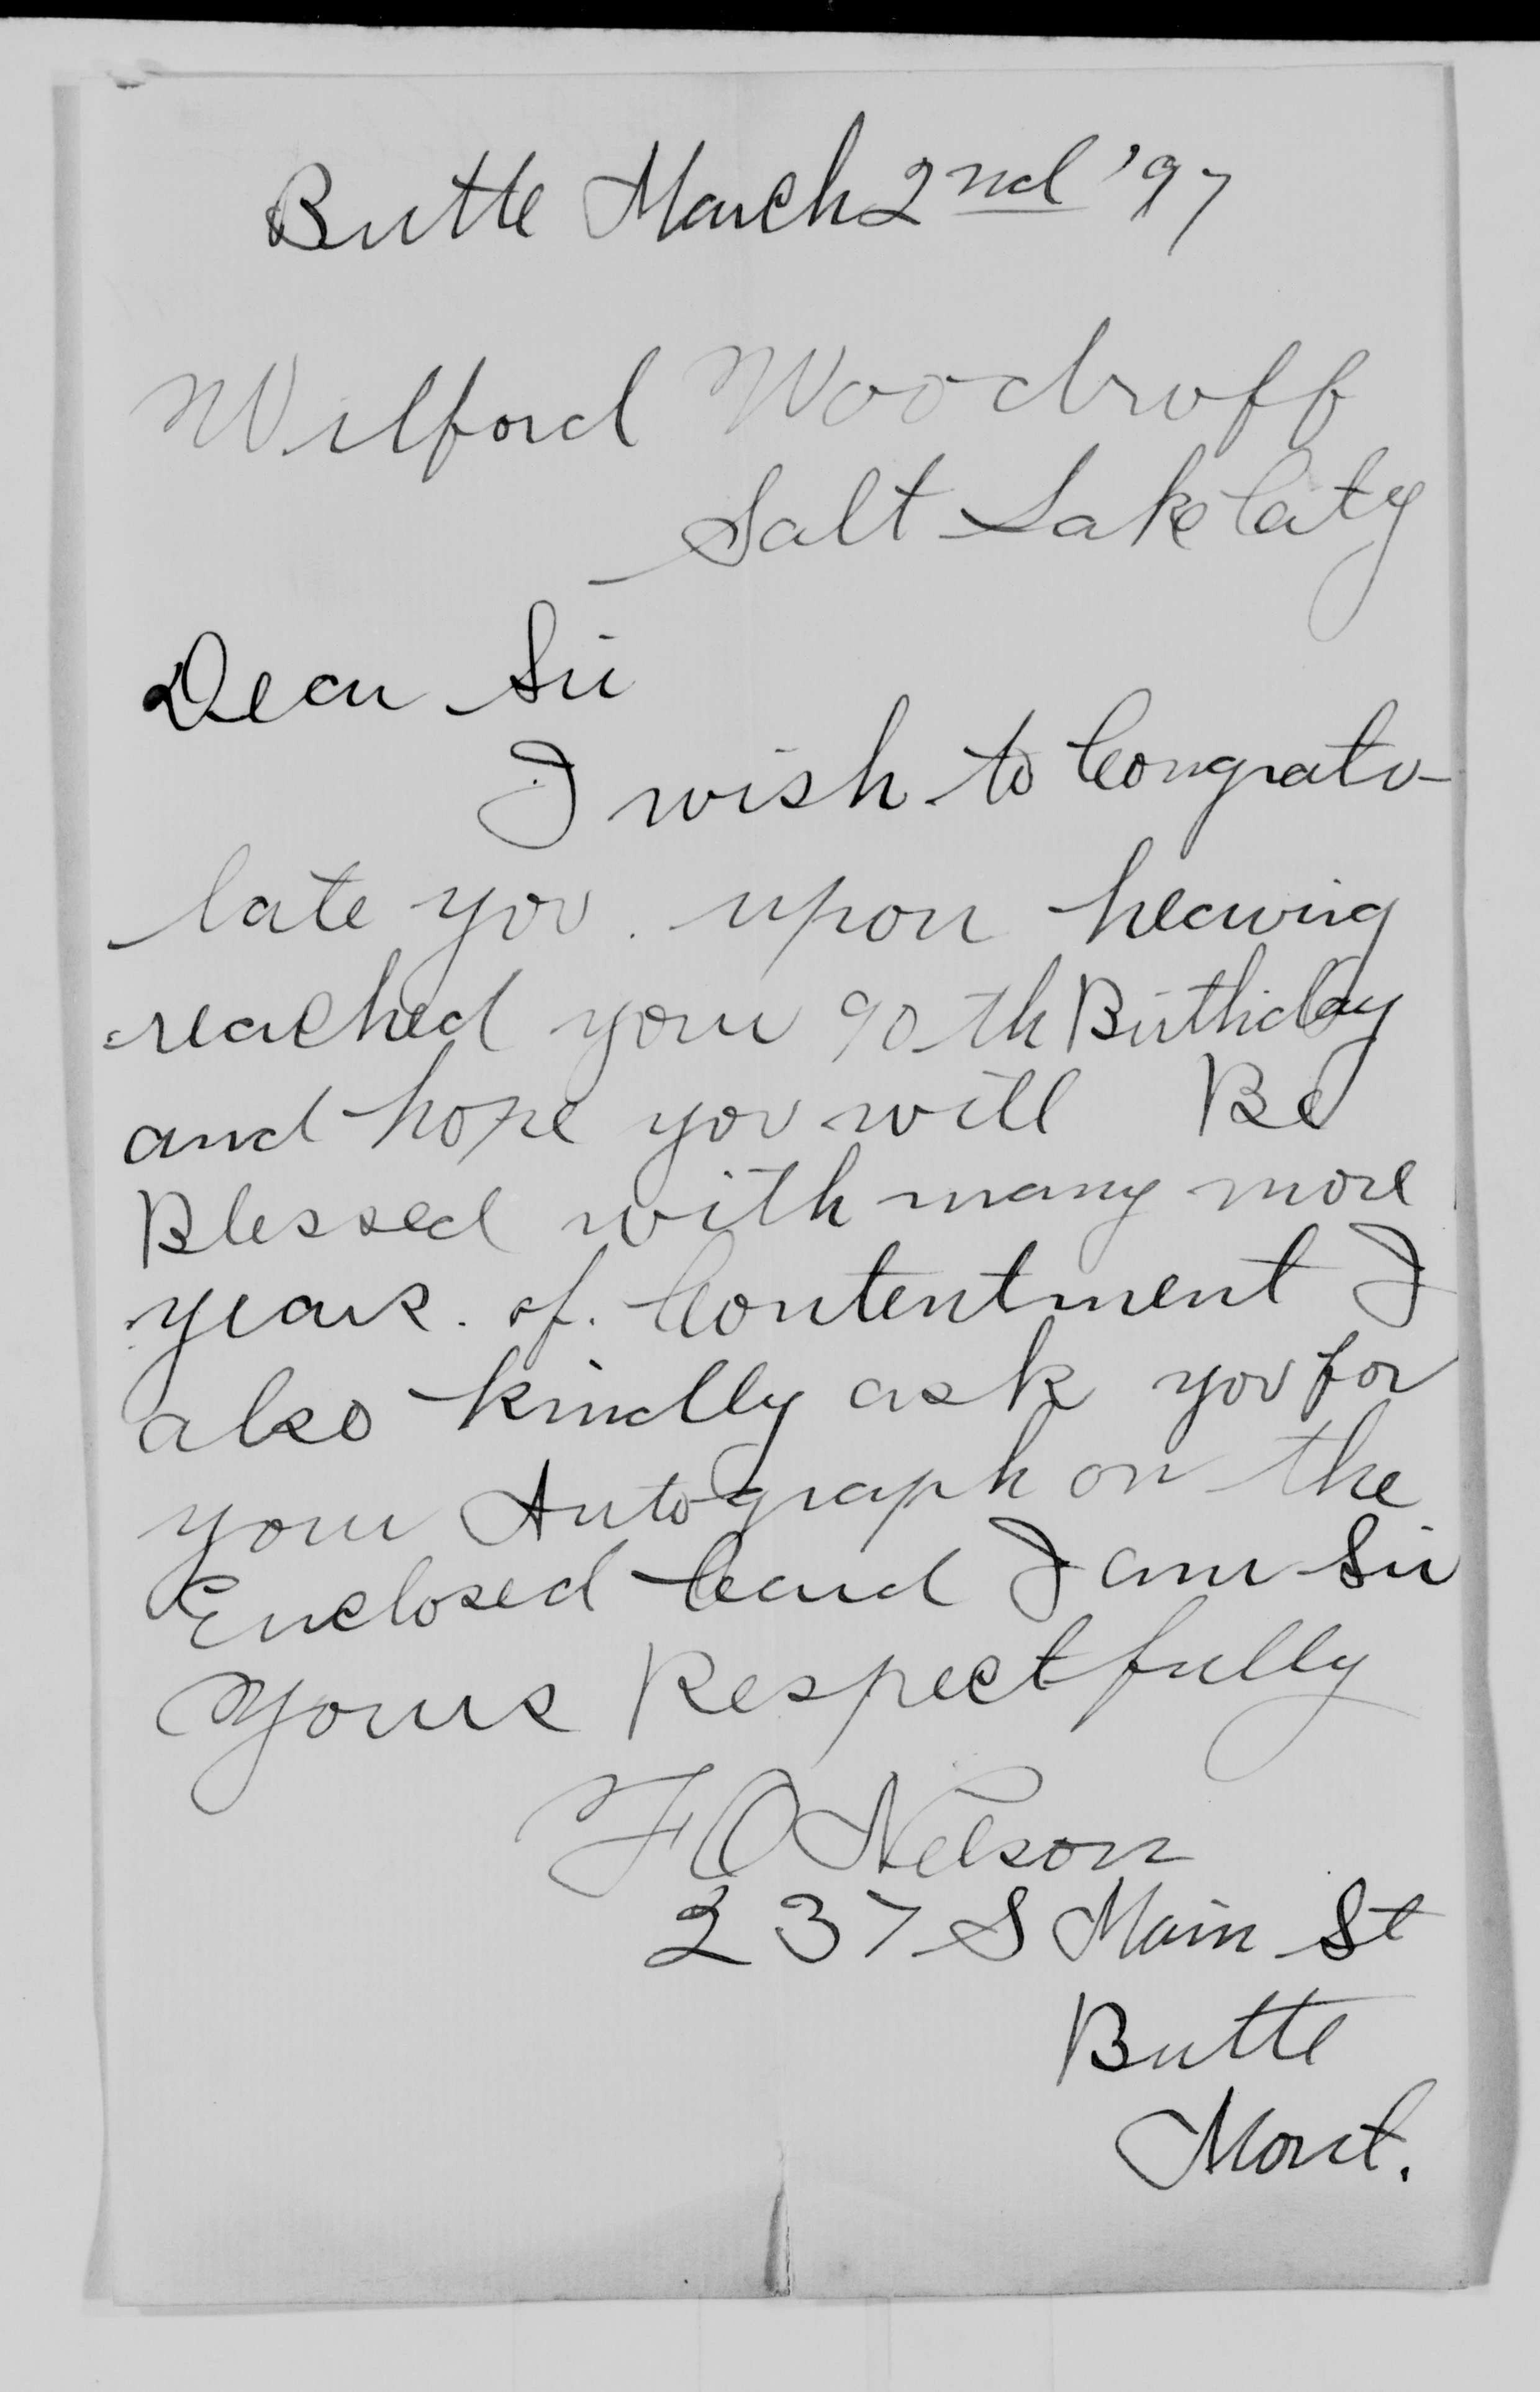 Butte March 2nd '97
Wilford Woodruff
Salt Lake City
Dear Sir
I wish to Congratu-
late you upon hearing
reached your 90th Birthday
and hope you will Be
Blessed with many more
years. of. Contentment I
also kindly ask you for
your Autograph on the
Enclosed Card I am Sir
Yours Respectfully
F O Nelson
237 S Main St
Butte
Mont.